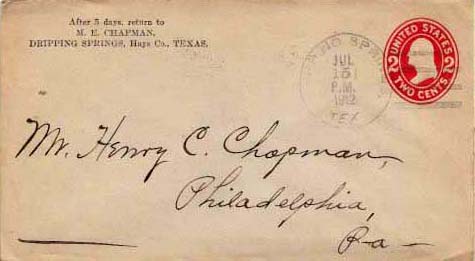 After 5 days, return to
M. E. CHAPMAN,
DRIPPING SPRINGS, Hays Co., TEXAS.
UNITED STATES
2 TWO CENTS 2
JUL
15
P.M.
1912
TEX
Mr. Henry C. Chapman,
Philadelphia,
Pa